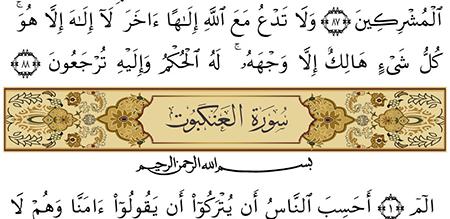 ٱلْمُشْرِكِينَ ﴿٨٧﴾ وَلَا تَدْعُ مَعَ ٱللَّهِ إِلَـٰهًا ءَاخَرَ ۘ لَآ إِلَـٰهَ إِلَّا هُوَ ۚ
كُلُّ شَىْءٍ هَالِكٌ إِلَّا وَجْهَهُۥ ۚ لَهُ ٱلْحُكْمُ وَإِلَيْهِ تُرْجَعُونَ ﴿٨٨﴾
سُورَةُ العَنكَبُوت
بسم الله الرحمن الرحيم
الٓمٓ ﴿١﴾ أَحَسِبَ ٱلنَّاسُ أَن يُتْرَكُوٓا۟ أَن يَقُولُوٓا۟ ءَامَنَّا وَهُمْ لَا